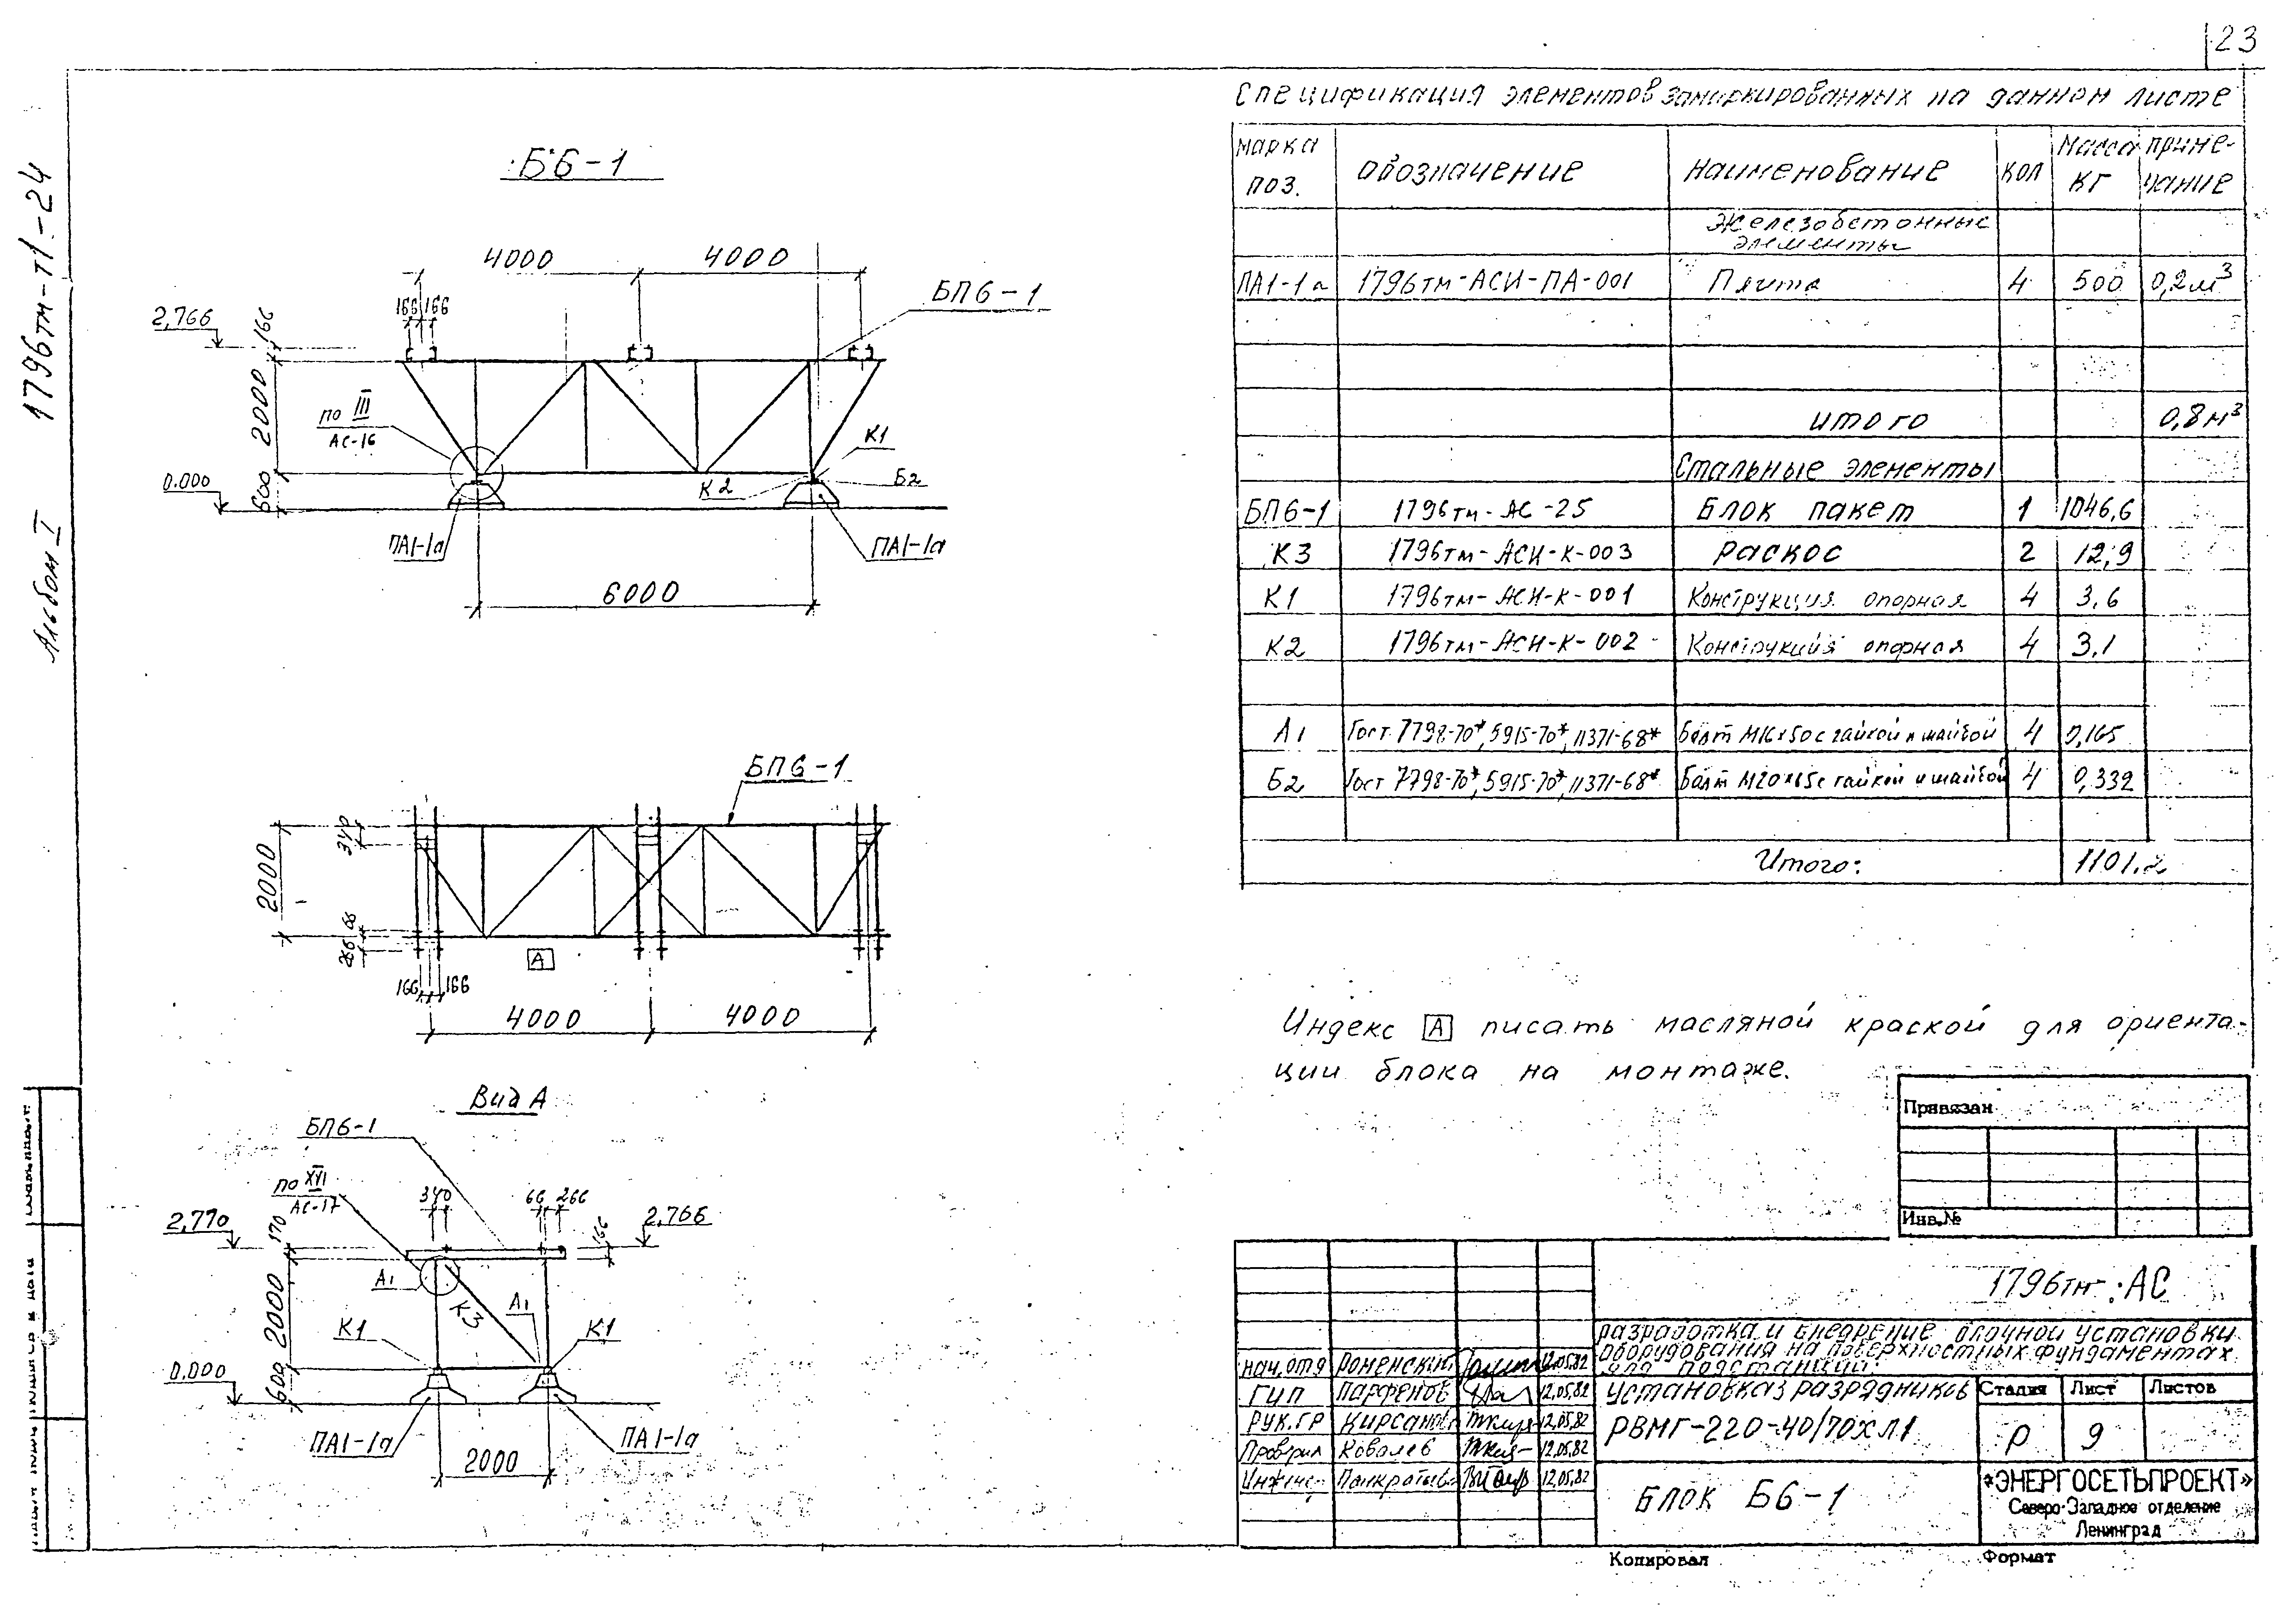 23
Альбом I 1796тм-т1-24
Б6-1
4000 4000
166 166
БП6-1
2,766
166
2000
по III
АС-16
600
0.000
К1
К2
Б2
ПА1-1а
ПА1-1а
6000
БП6-1
340
2000
66
266
А
166 166
4000 4000
Вид А
БП6-1
по XVI
АС-17
340
66 266
2,770
170
2,766
166
А1
К3
А1
2000
К1
К1
0.000
600
ПА1-1а
ПА1-1а
2000
Спецификация элементов замаркированных на данном листе
Марка поз. Обозначение Наименование Кол Масса кг Примечание
Железобетонные элементы
ПА1-1а 1796тм-АСИ-ПА-001 Плита 4 500 0,2м³
Итого 0,8м³
Стальные элементы
БП6-1 1796тм-АС-25 Блок пакет 1 1046,6
К3 1796тм-АСИ-К-003 Раскос 2 12,9
К1 1796тм-АСИ-К-001 Конструкция опорная 4 3,6
К2 1796тм-АСИ-К-002 Конструкция опорная 4 3,1
А1 Гост 7798-70*, 5915-70*, 11371-68* Болт М16х50 с гайкой и шайбой 4 0,165
Б2 Гост 7798-70*, 5915-70*, 11371-68* Болт М20х65 с гайкой и шайбой 4 0,339
Итого: 1101.2
Индекс А писать масляной краской для ориента-
ции блока на монтаже.
Привязан
Инв.№
1796тм-АС
Разработка и внедрение блочной установки
оборудования на поверхностных фундаментах
для подстанций.
Нач.отд Роменский 12.05.82
ГИП Парфенов 12.05.82
Рук.гр Кирсанова 12.05.82
Проверил Ковалев 12.05.82
Инжен. Панкратьева 12.05.82
Установка 3 разрядников
РВМГ-220-40/70ХЛ1
Стадия Лист Листов
Р 9
Блок Б6-1
«ЭНЕРГОСЕТЬПРОЕКТ»
Северо-Западное отделение
Ленинград
Копировал
Формат